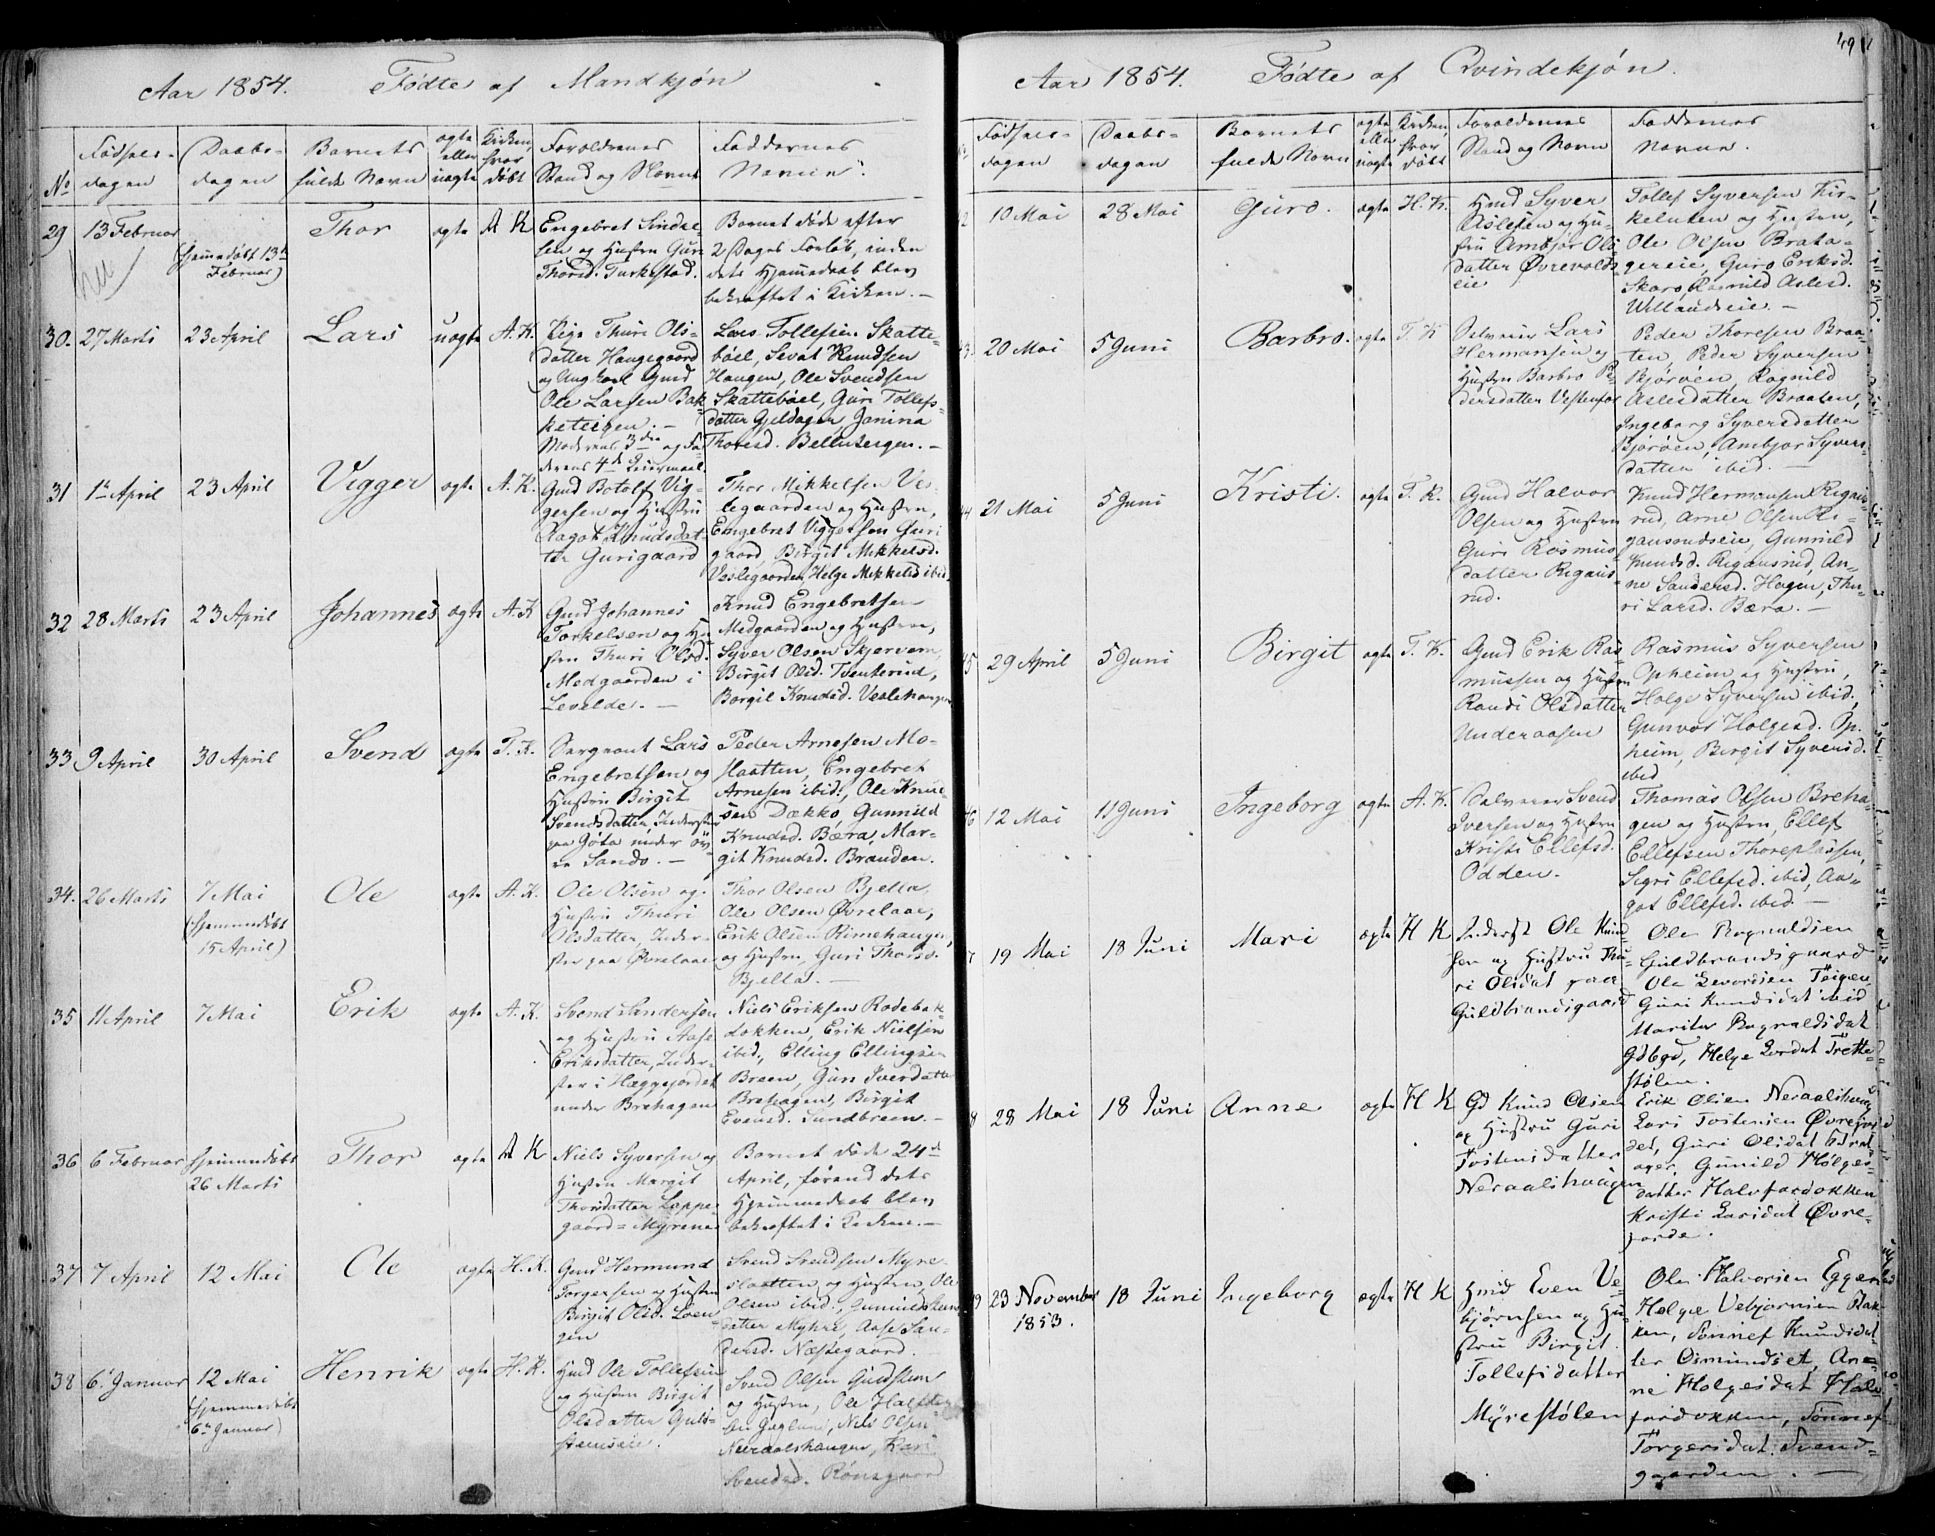 Aar 1854. Fødte af Mandkjøn
No
Fødsels-
dagen
Daabs-
dagen
Barnets
fulde Navn
ægte
eller
uægte
Kirken,
hvor
døbt
Forældrenes
Stand og Navn
Faddernes
Navne.
29 13 Februar
(hjemmedøbt 13de
Februar)
Thor ægte A K
Engebret Sindre-
sen og Hustru Guri
Thorsd. Turkestad.
Barnet døde efter
2 Dages Forløb, inden
dets Hjemmedaab blev
bekræftet i Kirken. —
30. 27 Marts 23 April Lars uægte A. K.
Pige Thuri Ols-
datter Haugegaard
og Ungkarl Gmd
Ole Larsen Bak-
keteigen. —
Moderens 3die og Fa-
derens 4de Leiermaal.
Lars Tollefsen Skatte-
bøel, Sevat Knudsen
Haugen, Ole Svendsen
Skattebøel, Guri Tollefs-
datter Gjeldager, Janina
Thoresd. Belluteigen. —
31 1ste April 23 April Vigger ægte A. K.
Gmd Botolf Vig-
gersen og Hustru
Aagot Knudsdat-
ter Gurigaard
Thor Mikkelsen Ves-
legaarden og Hustru,
Engebret Viggersen Guri
gaard, Birgit Mikkelsd.
Veslegaarden, Helge Mikkelsd ibid.
32 28 Marts 23 April Johannes ægte A. K
Gmd Johannes
Torkelsen og Hu-
stru Thuri Olsd.
Medgaarden i
Levelde. —
Knud Engebretsen
Medgaarden og Hustru,
Syver Olsen Skjervem,
Birgit Olsd. Tventerud,
Borgil Knudsd. Veslehaugen
33 9 April 30 April Svend ægte T. K.
Sergeant Lars
Engebretsen og
Hustru Birgit
Svendsdatter, Inderster
paa Göta under øv-
re Sando. —
Peder Arnesen Mo-
slaatten, Engebret
Arnesen ibid., Ole Knud-
sen Dække, Gunnild
Knudsd. Bæra, Mar-
git Knudsd. Brenden.
34. 26 Marts 7 Mai
(hjemmedøbt
15 April)
Ole ægte A. K.
Ole Olsen og
Hustru Thuri
Olsdatter, Inder-
ster paa Øvrelaae
Thor Olsen Bjella,
Ole Olsen Øvrelaae,
Erik Olsen Rimehaugen,
og Hustru, Guri Thorsd.
Bjella. —
35 11 April 7 Mai Erik ægte A. K.
Svend Sandersen
og Hustru Aase
Eriksdatter, Inder-
ster i Hæggejordet
under Brehagen
Niels Eriksen Rodebak-
løkken, Erik Nielsen
ibid., Elling Ellingsen
Breen, Guri Iversdatter
Brehagen, Birgit
Evensd. Sundbreen. —
36 6 Februar Hjemmedøbt
26 Marts
Thor ægte A K
Niels Syversen og
Hustru Margit
Thorsdatter Loppe-
gaard=Myrene
Barnet døde 24de
April, førend dets
Hjemmedaab blev
bekræftet i Kirken. —
37 7 April 12 Mai Ole ægte H. K.
Gmd Hermund
Torgersen og Hustru
Birgit Olsd. Loen-
gen
Svend Svendsen Myre-
slaatten og Hustru, Ole
Olsen ibid., Gunnild Svens-
datter Myhre, Aase San-
dersd. Næstegaard.
38 6te Januar 12 Mai
(hjemmedøbt
6te Januar)
Henrik ægte H. K.
Hmd Ole Tollefsen
og Hustru Birgit
Olsdatter Guls-
teinseie.
Svend Olsen Guldstein
og Hustru, Ole
Nils Olsen
Neraalshaugen, Kari
Svendsd. Rønsgaard
49
Aar 1854. Fødte af Qvindekjøn.
Fødsels-
dagen
Daabs-
dagen
Barnets
fulde Navn
ægte
eller
uægte
Kirken,
hvor
døbt
Forældrenes
Stand og Navn
Faddernes
Navne.
2 10 Mai 28 Mai Guro. ægte H. K.
Hmd Syver
Aslesen og Hu-
stru Ambjør Ols-
datter Øvrevolds-
eie
Tollef Syversen Kir-
keluten og Hustru,
Ole Olsen Brata-
gereie, Guro Eriksd.
Skaro, Ragnild Aslesd.
Villandseie. —
3. 20 Mai 5 Juni Barbro. ægte T. K
Selveier Lars
Hermansen og
Hustru Barbro Pe-
dersdatter Vestenfor
Peder Thoresen Braa-
ten, Peder Syversen
Bjørøen, Ragnild
Aslesdatter Braaten,
Ingeborg Syversdatter
Bjørøen, Ambjor Syvers-
datter ibid. —
44 21 Mai 5 Juni Kristi. ægte T. K.
Gmd Halvor
Olsen og Hustru
Guri Rasmus-
datter Rigaus-
rud.
Knud Hermansen Rigaus-
rud, Arne Olsen Ri-
gausrudseie, Gunnild
Knudsd. Rigausrud, An-
ne Sandersd. Hagen, Thu-
ri Larsd. Bæra. —
45 29 April 5 Juni Birgit ægte T. K.
Gmd Erik Ras-
mussen og Hustru
Randi Olsdatter
Underaasen
Rasmus Syversen
Opheim og Hustru,
Holge Syversen ibid,
Gunvor Holgesd. Op-
heim, Birgit Syversd.
ibid
46 12 Mai 11 Juni Ingeborg ægte A. K.
Selveier Svend
Iversen og Hustru
Kristi Ellefsd.
Odden.
Thomas Olsen Breha-
gen og Hustru, Ellef
Ellefsen Thoreplassen,
Sigri Ellefsd. ibid, Aa-
got Ellefsd. ibid —
7 19 Mai 18 Juni Mari ægte H K
Inderst Ole Knud-
sen og Hustru Thu-
ri Olsdat paa
Guldbrandsgaard
Ole Rognaldsen
Guldbrandsgaard
Ole Levordsen Teigen,
Guri Knudsdat ibid
Marita Rognaldsdat
Gdbgd, Helge Larsdat Trette-
stølen.
8 28 Mai 18 Juni Anne ægte H K
Gd Knud Olsen
og Hustru Guri
Tostensdatter
Neraalshaugen
Erik Olsen Neraalshaug
Lars Tostensen Øvrejor-
det, Guri Olsdat Brat-
ager, Gunild Holges-
datter Halvfardokken
Kristi Larsdat Øvre-
jorde.
9 23 November
1853.
18 Juni Ingeborg ægte H K
Hmd Even Ve-
bjørnsen og Hu-
stru Birgit
Tollefsdatter
Myrestølen
Ole Halvorsen Eggen
Helge Vebjørnsen Bak-
ken, Sønnef Knudsdat-
ter Asmundset, An-
ne Holgesdat Halv-
fardokken, Sønnef
Torgersdat. Svend-
gaarden. —